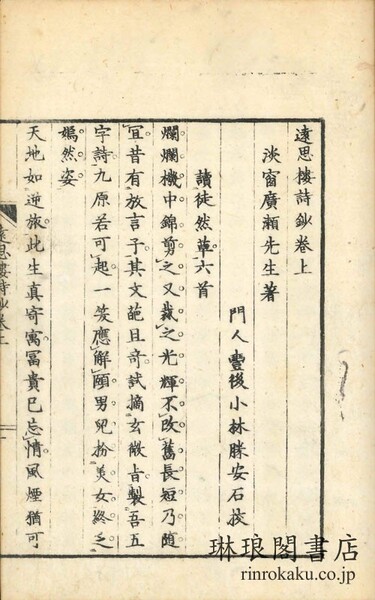 遠思樓詩鈔卷上
淡窗廣瀨先生著
門人豐後小林勝安石挍
讀徒然草六首
爛爛機中錦剪之又裁之光輝不改舊長短乃隨
宜昔有放言子其文葩且奇試摘玄微旨製吾五
字詩九原若可起一笑應解頤男兒扮美女終乏
嫣然姿
天地如逆旅此生真寄寓冨貴已忘情風煙猶可
遠思樓詩鈔卷上
琳琅閣書店
rinrokaku.co.jp